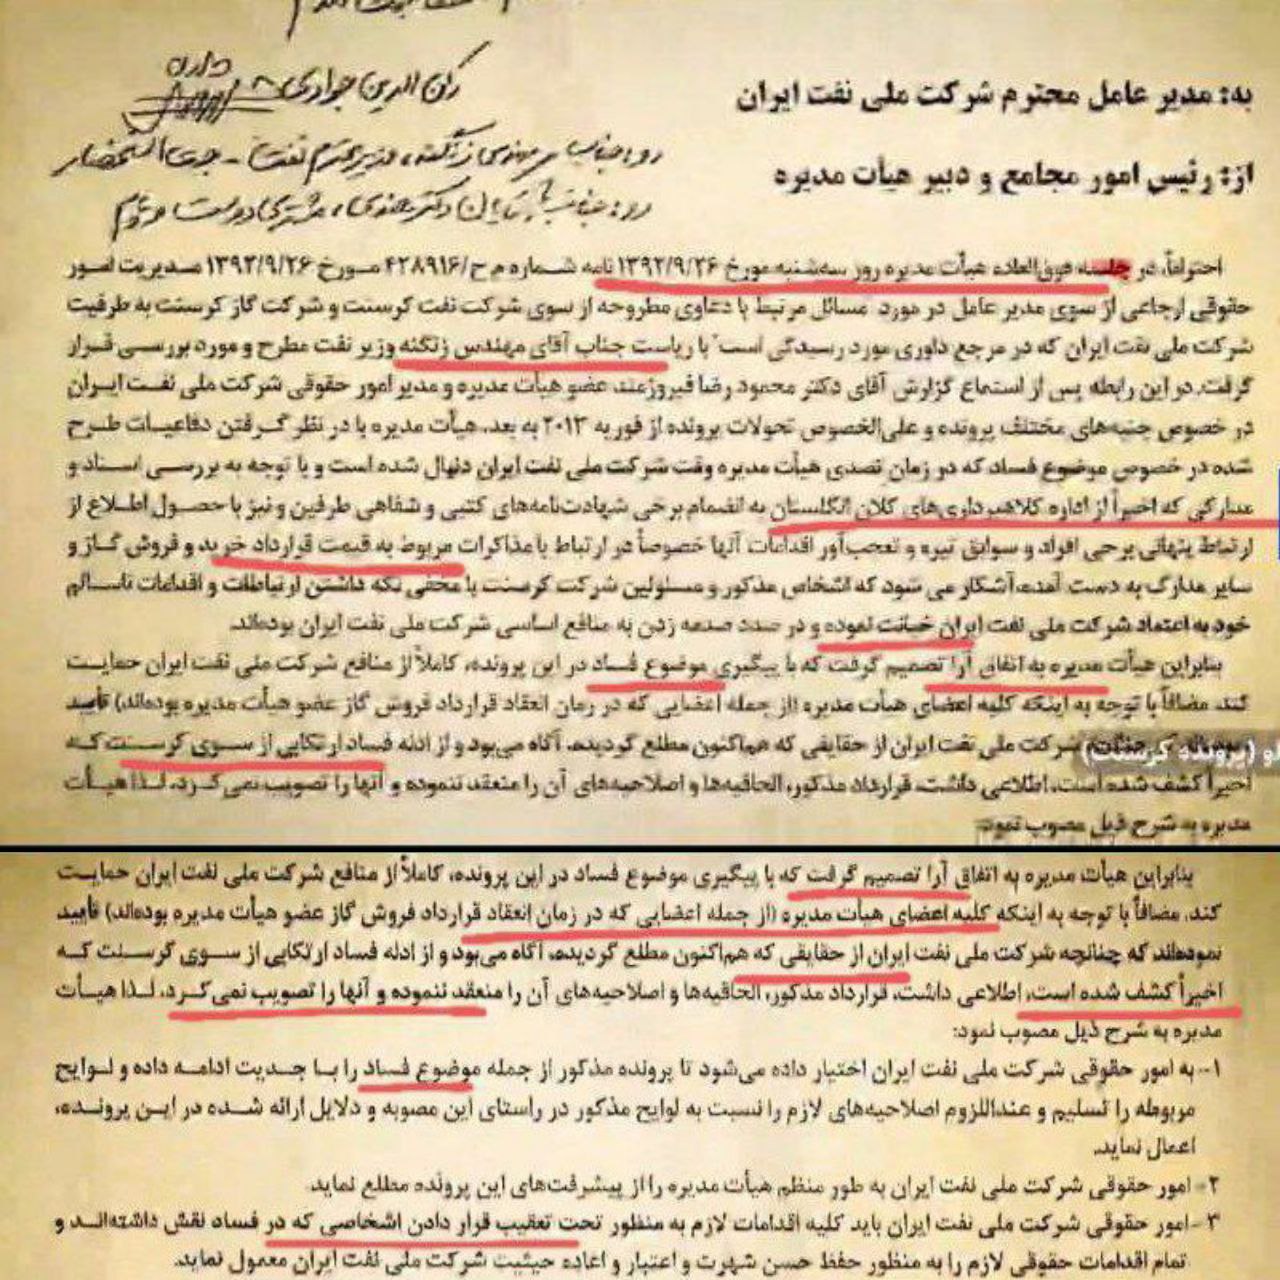 رکن الدین جوادی
به: مدیر عامل محترم شرکت ملی نفت ایران
از: رئیس امور مجامع و دبیر هیأت مدیره
احتراماً، در جلسه فوق‌العاده هیأت مدیره روز سه‌شنبه مورخ ۱۳۹۲/۹/۲۶ نامه شماره م ح/۴۲۸۹۱۶ مورخ ۱۳۹۲/۹/۲۶ مدیریت امور
حقوقی ارجاعی از سوی مدیر عامل در مورد مسائل مرتبط با دعاوی مطروحه از سوی شرکت نفت کرسنت و شرکت گاز کرسنت به طرفیت
شرکت ملی نفت ایران که در مرجع داوری مورد رسیدگی است با ریاست جناب آقای مهندس زنگنه وزیر نفت مطرح و مورد بررسی قرار
گرفت. در این رابطه پس از استماع گزارش آقای دکتر محمود رضا فیروزمند، عضو هیأت مدیره و مدیر امور حقوقی شرکت ملی نفت ایران
در خصوص جنبه‌های مختلف پرونده و علی‌الخصوص تحولات پرونده از فوریه ۲۰۱۳ به بعد، هیأت مدیره با در نظر گرفتن دفاعیات طرح
شده در خصوص موضوع فساد که در زمان تصدی هیأت مدیره وقت شرکت ملی نفت ایران دنبال شده است و با توجه به بررسی اسناد و
مدارکی که اخیراً از اداره کلاهبرداری‌های کلان انگلستان به انضمام برخی شهادت‌نامه‌های کتبی و شفاهی طرفین و نیز با حصول اطلاع از
ارتباط پنهانی برخی افراد و سوابق تیره و تعجب‌آور اقدامات آنها خصوصاً در ارتباط با مذاکرات مربوط به قیمت قرارداد خرید و فروش گاز و
سایر مدارک به دست آمده، آشکار می شود که اشخاص مذکور و مسئولین شرکت کرسنت با مخفی نگه داشتن ارتباطات و اقدامات ناسالم
خود به اعتماد شرکت ملی نفت ایران خیانت نموده و در صدد صدمه زدن به منافع اساسی شرکت ملی نفت ایران بوده‌اند.
بنابراین هیأت مدیره به اتفاق آرا تصمیم گرفت که با پیگیری موضوع فساد در این پرونده، کاملاً از منافع شرکت ملی نفت ایران حمایت
کند. مضافاً با توجه به اینکه کلیه اعضای هیأت مدیره (از جمله اعضایی که در زمان انعقاد قرارداد فروش گاز عضو هیأت مدیره بوده‌اند) تأیید
شرکت ملی نفت ایران از حقایقی که هم‌اکنون مطلع گردیده، آگاه می‌بود و از ادله فساد ارتکابی از سوی کرسنت که
(پرونده کرسنت)
اخیراً کشف شده است، اطلاعی داشت، قرارداد مذکور، الحاقیه‌ها و اصلاحیه‌های آن را منعقد ننموده و آنها را تصویب نمی‌کرد. لذا هیأت
مدیره به شرح ذیل مصوب نمود:
بنابراین هیأت مدیره به اتفاق آرا تصمیم گرفت که با پیگیری موضوع فساد در این پرونده، کاملاً از منافع شرکت ملی نفت ایران حمایت
کند. مضافاً با توجه به اینکه کلیه اعضای هیأت مدیره (از جمله اعضایی که در زمان انعقاد قرارداد فروش گاز عضو هیأت مدیره بوده‌اند) تأیید
نموده‌اند که چنانچه شرکت ملی نفت ایران از حقایقی که هم‌اکنون مطلع گردیده، آگاه می‌بود و از ادله فساد ارتکابی از سوی کرسنت که
اخیراً کشف شده است، اطلاعی داشت، قرارداد مذکور، الحاقیه‌ها و اصلاحیه‌های آن را منعقد ننموده و آنها را تصویب نمی‌کرد. لذا هیأت
مدیره به شرح ذیل مصوب نمود:
۱- به امور حقوقی شرکت ملی نفت ایران اختیار داده می‌شود تا پرونده مذکور از جمله موضوع فساد را با جدیت ادامه داده و لوایح
مربوطه را تسلیم و عنداللزوم اصلاحیه‌های لازم را نسبت به لوایح مذکور در راستای این مصوبه و دلایل ارائه شده در این پرونده،
اعمال نماید.
۲- امور حقوقی شرکت ملی نفت ایران به طور منظم هیأت مدیره را از پیشرفت‌های این پرونده مطلع نماید.
۳- امور حقوقی شرکت ملی نفت ایران باید کلیه اقدامات لازم به منظور تحت تعقیب قرار دادن اشخاصی که در فساد نقش داشته‌اند و
تمام اقدامات حقوقی لازم را به منظور حفظ حسن شهرت و اعتبار و اعاده حیثیت شرکت ملی نفت ایران معمول نماید.